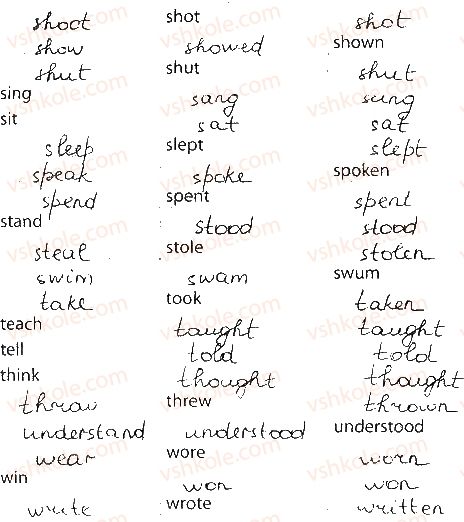 shoot shot shot
show showed shown
shut shut shut
sing sang sung
sit sat sat
sleep slept slept
speak spoke spoken
spend spent spent
stand stood stood
steal stole stolen
swim swam swum
take took taken
teach taught taught
tell told told
think thought thought
throw threw thrown
understand understood understood
wear wore worn
win won won
write wrote written